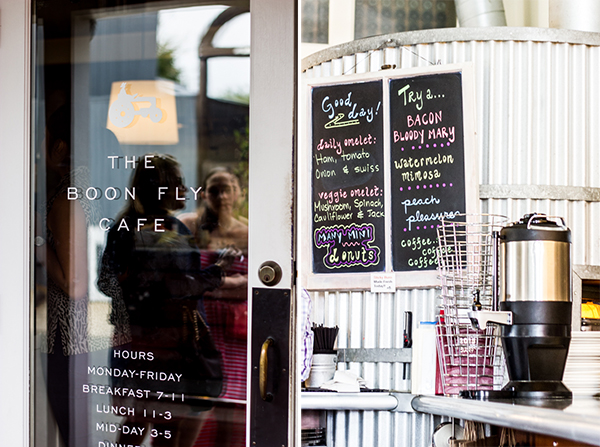 THE
BOON FLY
CAFE
HOURS
MONDAY-FRIDAY
BREAKFAST 7-11
LUNCH 11-3
MID-DAY 3-5
Good day!
daily omelet:
Ham, tomato
Onion & swiss
veggie omelet:
Mushroom, Spinach,
Cauliflower & Jack
MANY MINI
donuts
Try a...
BACON
BLOODY MARY
watermelon
mimosa
peach
pleasure
coffee..
coffee..